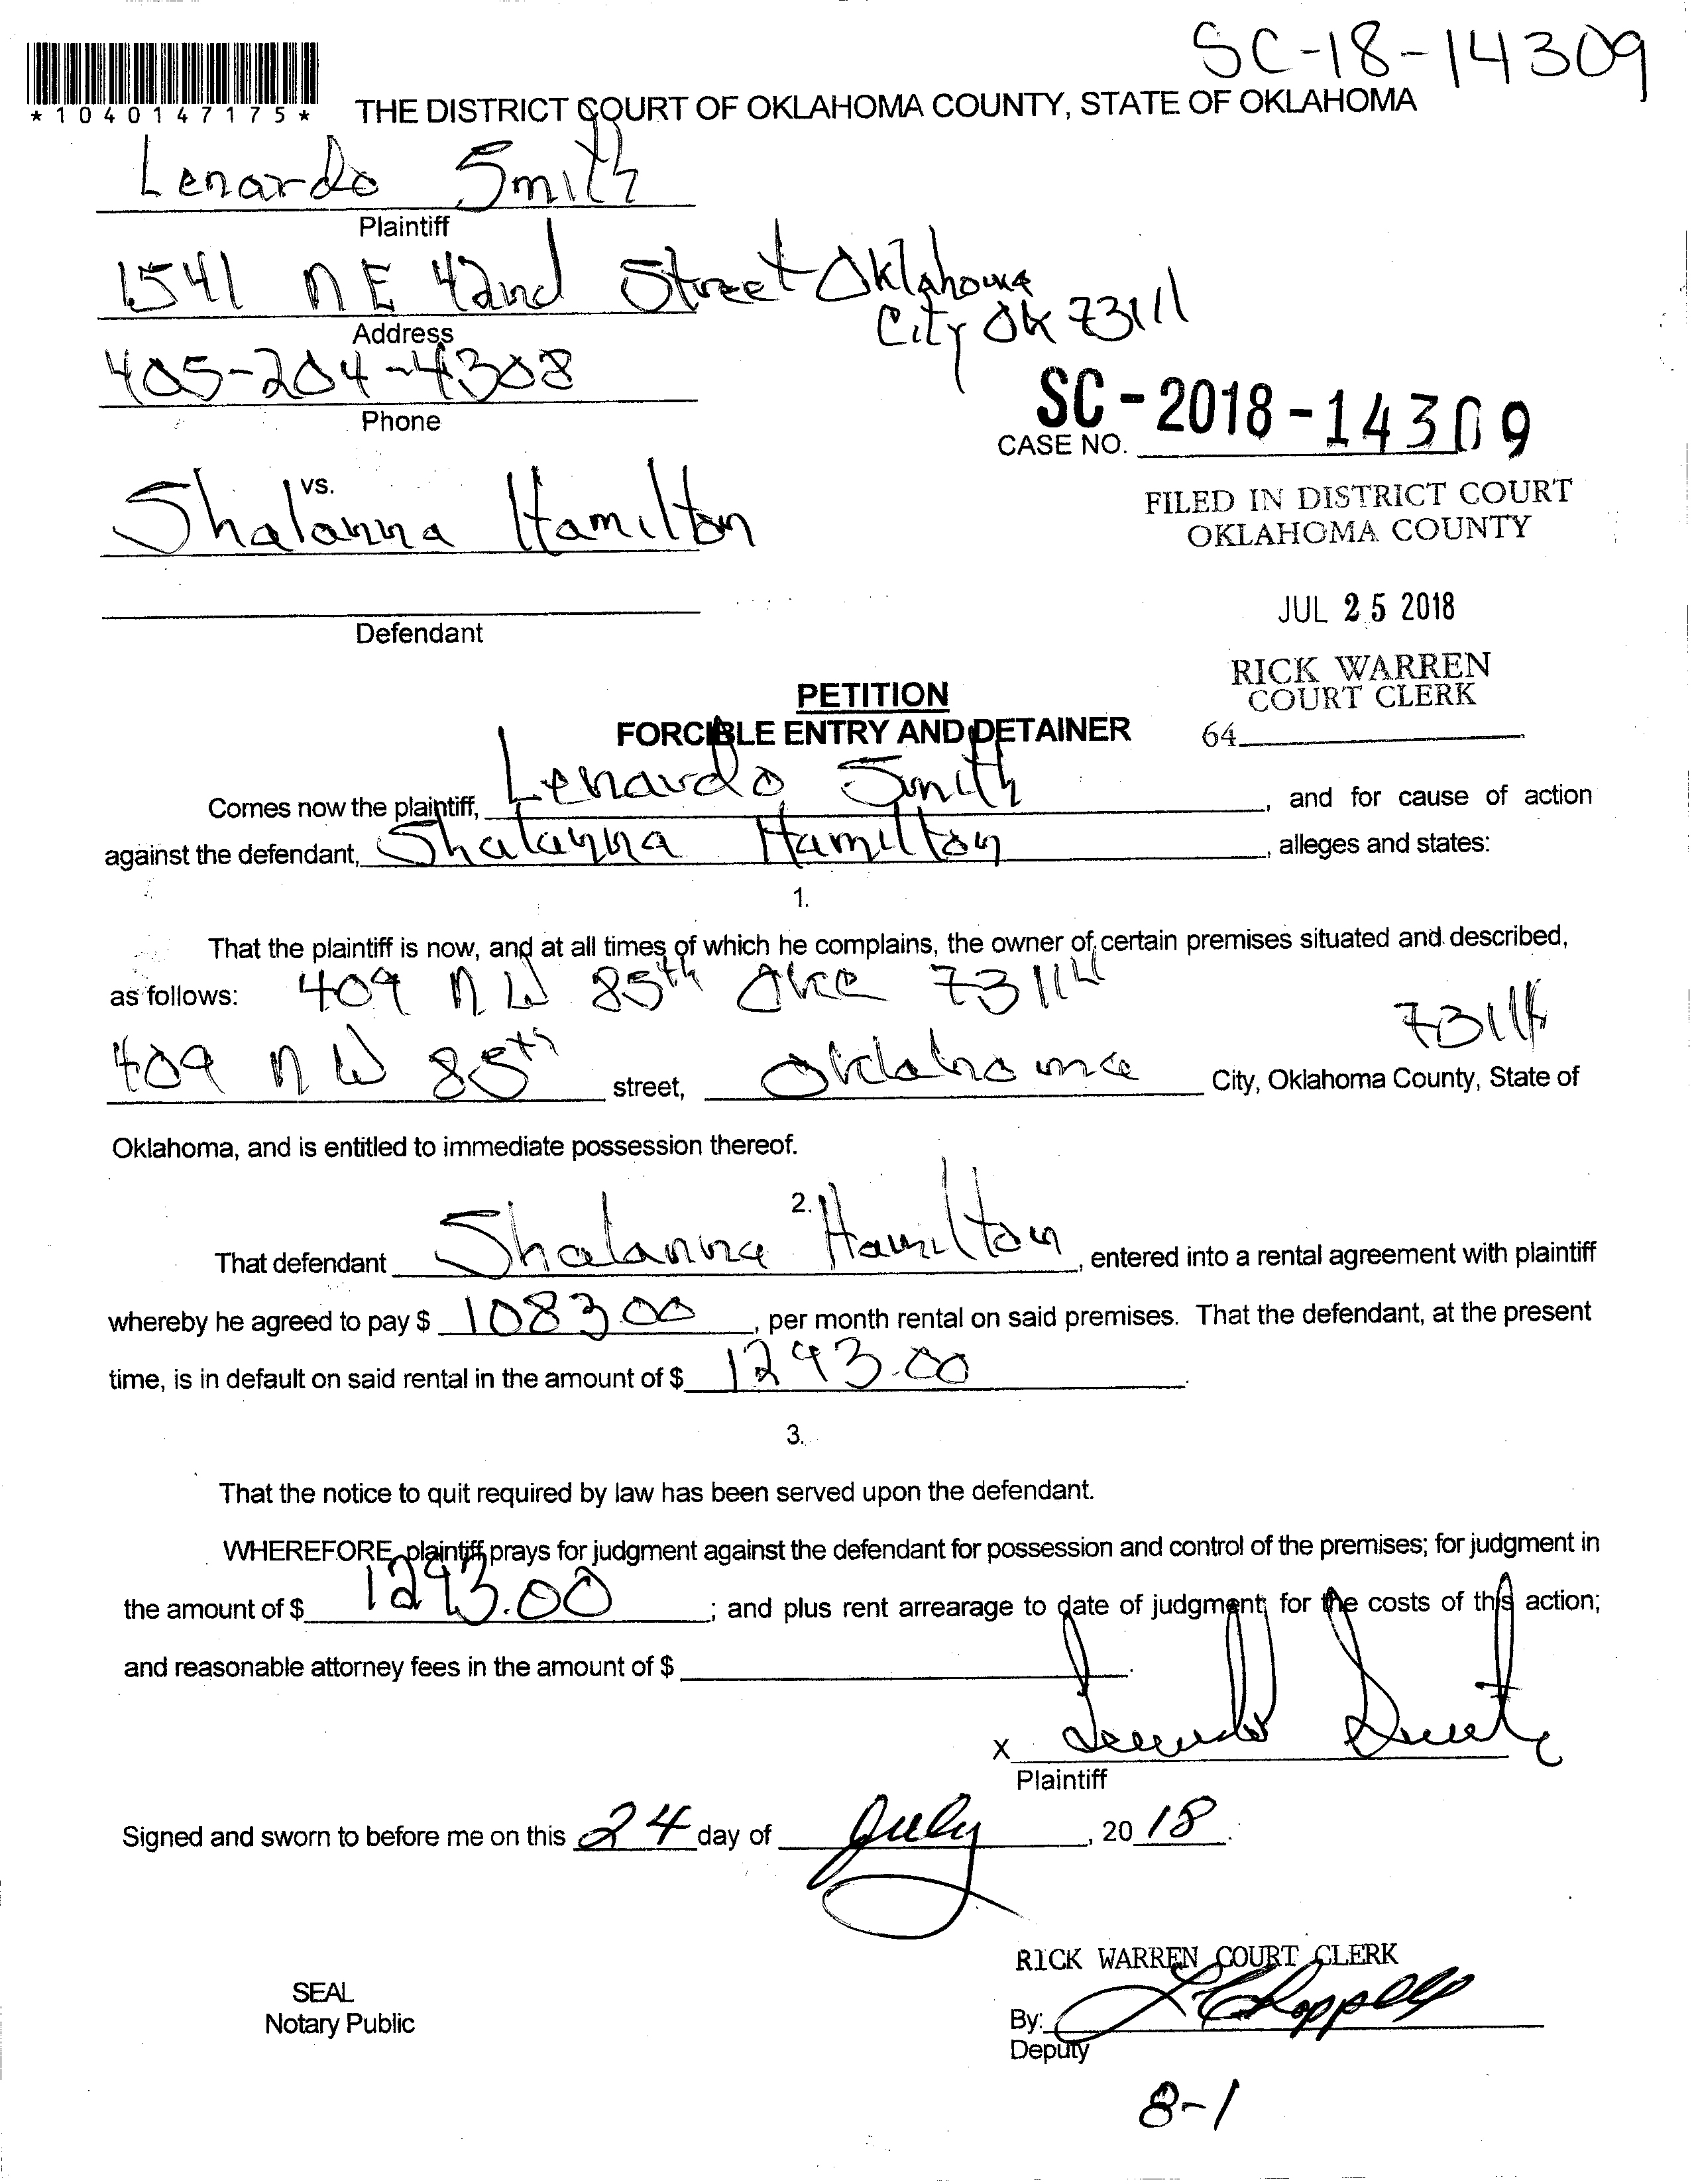 SC-18-14309
*10401471​75*
THE DISTRICT COURT OF OKLAHOMA COUNTY, STATE OF OKLAHOMA
Lenardo Smith
Plaintiff
1541 NE 42nd Street Oklahoma
City Ok 73111
Address
405-204-4308
Phone
SC-2018-14309
CASE NO.
vs.
Shalanna Hamilton
FILED IN DISTRICT COURT
OKLAHOMA COUNTY
JUL 25 2018
Defendant
RICK WARREN
COURT CLERK
64
PETITION
FORCIBLE ENTRY AND DETAINER
Comes now the plaintiff, Lenardo Smith, and for cause of action
against the defendant, Shalanna Hamilton, alleges and states:
1.
That the plaintiff is now, and at all times of which he complains, the owner of certain premises situated and described,
as follows: 409 NW 85th 73114
73114
409 NW 85th street, Oklahoma City, Oklahoma County, State of
Oklahoma, and is entitled to immediate possession thereof.
2.
That defendant Shalanna Hamilton, entered into a rental agreement with plaintiff
whereby he agreed to pay $ 1083.00, per month rental on said premises. That the defendant, at the present
time, is in default on said rental in the amount of $ 1293.00.
3.
That the notice to quit required by law has been served upon the defendant.
WHEREFORE, plaintiff prays for judgment against the defendant for possession and control of the premises; for judgment in
the amount of $ 1293.00; and plus rent arrearage to date of judgment; for the costs of this action;
and reasonable attorney fees in the amount of $ .
X Lenardo Smith
Plaintiff
Signed and sworn to before me on this 24 day of July, 2018.
RICK WARREN COURT CLERK
SEAL
Notary Public
By:
Deputy
8-1